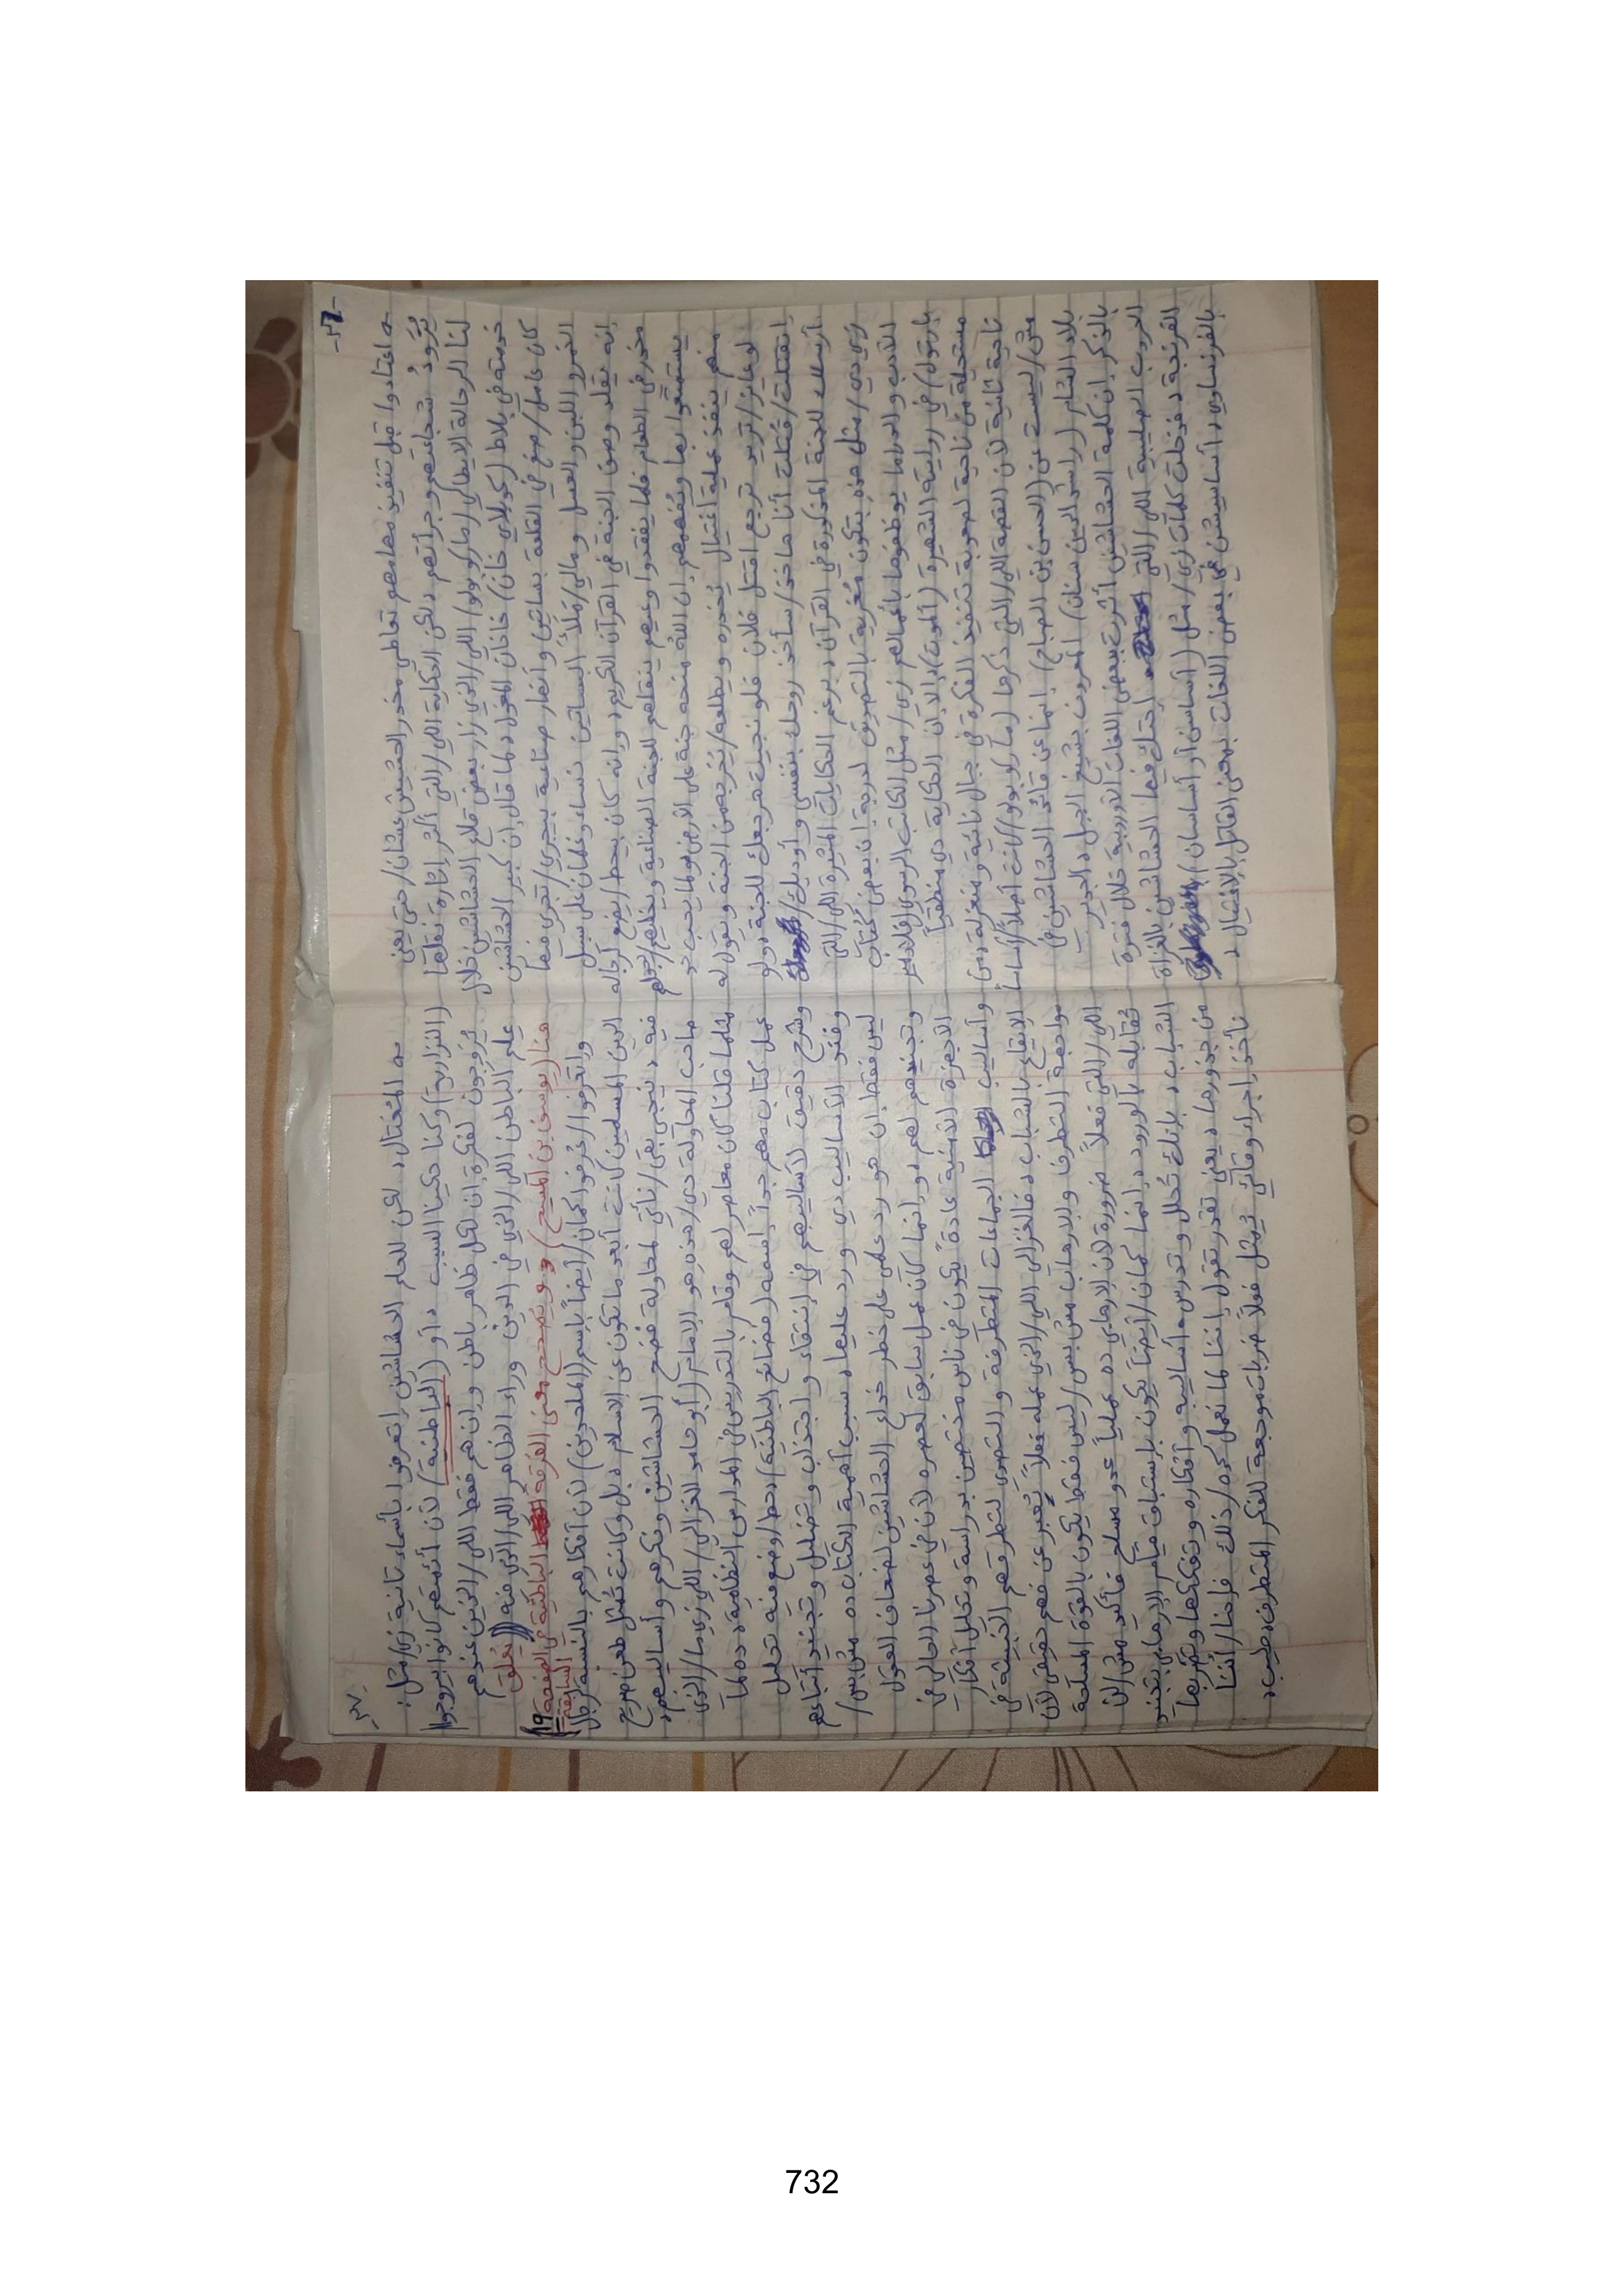 -٣٦-
اعتادوا قبل تنفيذ مهامهم تعاطي مخدر الحشيش عشان/حتى يعني
تزود شجاعتهم وجرأتهم، لكن الحكاية اللي/التي أكثر إثارة نقلها
لنا الرحالة الإيطالي (ماركو بولو) اللي/الذي زار بعض قلاع الحشاشين خلال
خدمته في بلاط (كوبلاي خان) خاقان المغول، لما قال إن كبير الحشاشين
كان عامل/صنع في القلعة بساتين وأنهار صناعية بيجري/تجري فيها
الخمر واللبن والعسل ومالي/مَلَأَ البساتين نساء وغلمان على سبيل
إنه يقلد وصف الجنة في القرآن الكريم، وإنه كان بيحط/يضع لرجاله
مخدر في الطعام فلما يفقدوا وعيهم ينقلهم للجنة الصناعية ويخليهم/يجعلهم
يستمتعوا بها ويُفهمهم إن الله منحه جنة على الأرض ولما يحب حد
منهم ينفذ عملية اغتيال يُخدره ويطلعه/يُخرجه من الجنة ويقول له
لو عايز/تريد ترجع اقتل فلان فلو نجيت هرجعك للجنة، ولو
اتقتلت/قُتلت أنا هاخد/سآخذ روحك بنفسي وأوديك/
أرسلك للجنة المذكورة في القرآن، برغم الحكايات المثيرة اللي/التي
زي دي/مثل هذه بتكون مُغرية بالتصديق لدرجة إن بعض كُتاب
الأدب والدراما يوظفوها بأعمالهم زي/مثل الكاتب الروسي (فلاديمير
بارتول) في روايته الشهيرة (ألموت)، إلا أن الحكاية دي منطقياً
مستحيلة من ناحية لصعوبة تنفيذ الفكرة في جبال نائية ومنعزلة، ومن
ناحية تانية لأن القصة اللي/التي ذكرها (ماركو بولو) كانت أصلاً/أساساً
مش/ليست عن (الحسن بن الصباح) إنما عن قائد الحشاشين في
بلاد الشام (راشد الدين سنان) المعروف بشيخ الجبل، الجدير
بالذكر إن كلمة الحشاشين أثرت ببعض اللغات الأوروبية خلال فترة
الحروب الصليبية اللي/التي احتك فيها الحشاشين بالغزاة
الفرنجة، فدخلت كلمات زي/مثل (أساسن أو أساسان)
بالفرنساوي، أساسيشن في بعض اللغات بمعنى القاتل بالاغتيال،
-٣٧-
المُغتال، لكن للعلم الحشاشين إتعرفوا بأسماء تانية زي/مثل:
(النزارية) وكنا حكينا السبب، أو (الباطنية) لأن أئمتهم كانوا بيروجوا/
يُروجون لفكرة إن لكل ظاهر باطن وإن هم فقط اللي/الذين عندهم
علم الباطن اللي/الذي في الدين وراء الظاهر اللي/الذي فيه (( يُعلق
هنا (يوسف بن المسيح) ويُصحح معنى الفرقة الباطنية في الصفحة السابقة ١٩))
واتعرفوا/عُرفوا كمان/أيضاً بإسم (الملحدين) لأن أفكارهم بالنسبة لرجال
الدين المسلمين كانت أبعد ما تكون عن الإسلام، بل وكانت تُمثل طعن صريح
فيه، نيجي بقى/نأتي لمحاولة فضح الحشاشين وفكرهم وأساليبهم،
صاحب المحاولة دي/هذه هو الإمام (أبو حامد الغزالي) اللي زي ما/الذي
مثلما قلنا كان معاصر لهم وقام بالتدريس في المدارس النظامية، ده لما
عمل كتاب مهم جداً إسمه (فضائح الباطنية)، حط/وضع فيه تحليل
وشرح دقيق لأساليبهم في إنتقاء واجتذاب وتضليل وتجنيد أتباعهم
وفند الأساليب دي ورد عليها، سبب أهمية الكتاب ده مش بس/
ليس فقط إن هو رد علمي على خطر خداع الحشاشين لضعاف العقول
وتجنيدهم لهم، وإنما كان عمل سابق لعصره لأن في عصرنا الحالي في
الأجهزة الأمنية عادةً يكون في ناس مختصين بدراسة وتحليل أفكار
وأساليب الجماعات المتطرفة والتصدي لطرقهم الخبيثة في
الإيقاع بالشباب، فالغزالي اللي/الذي عمله فعلاً يُعبر عن فهم حقيقي لأن
مواجهة التطرف والإرهاب مش بس/ليس فقط يكون بالقوة المسلحة
اللي/التي فعلاً ضرورة لأن الإرهابي ده عملياً عدو مسلح فأكيد مش/لن
تُقابله بالورود، إنما كمان/أيضاً يكون بإستباق قيام الإرهابي بتجنيد
الشباب، بإنك تُحلل وتدرس أساليبه وأفكاره وتفككها وتضربها
من جذورها، يعني تقدر تقول إننا لما نعمل كده/ذلك فإحنا/أننا
نأخذ إجراء وقائي يُمثل فعلاً ضربات موجعة للفكر المتطرف، طيب،
732